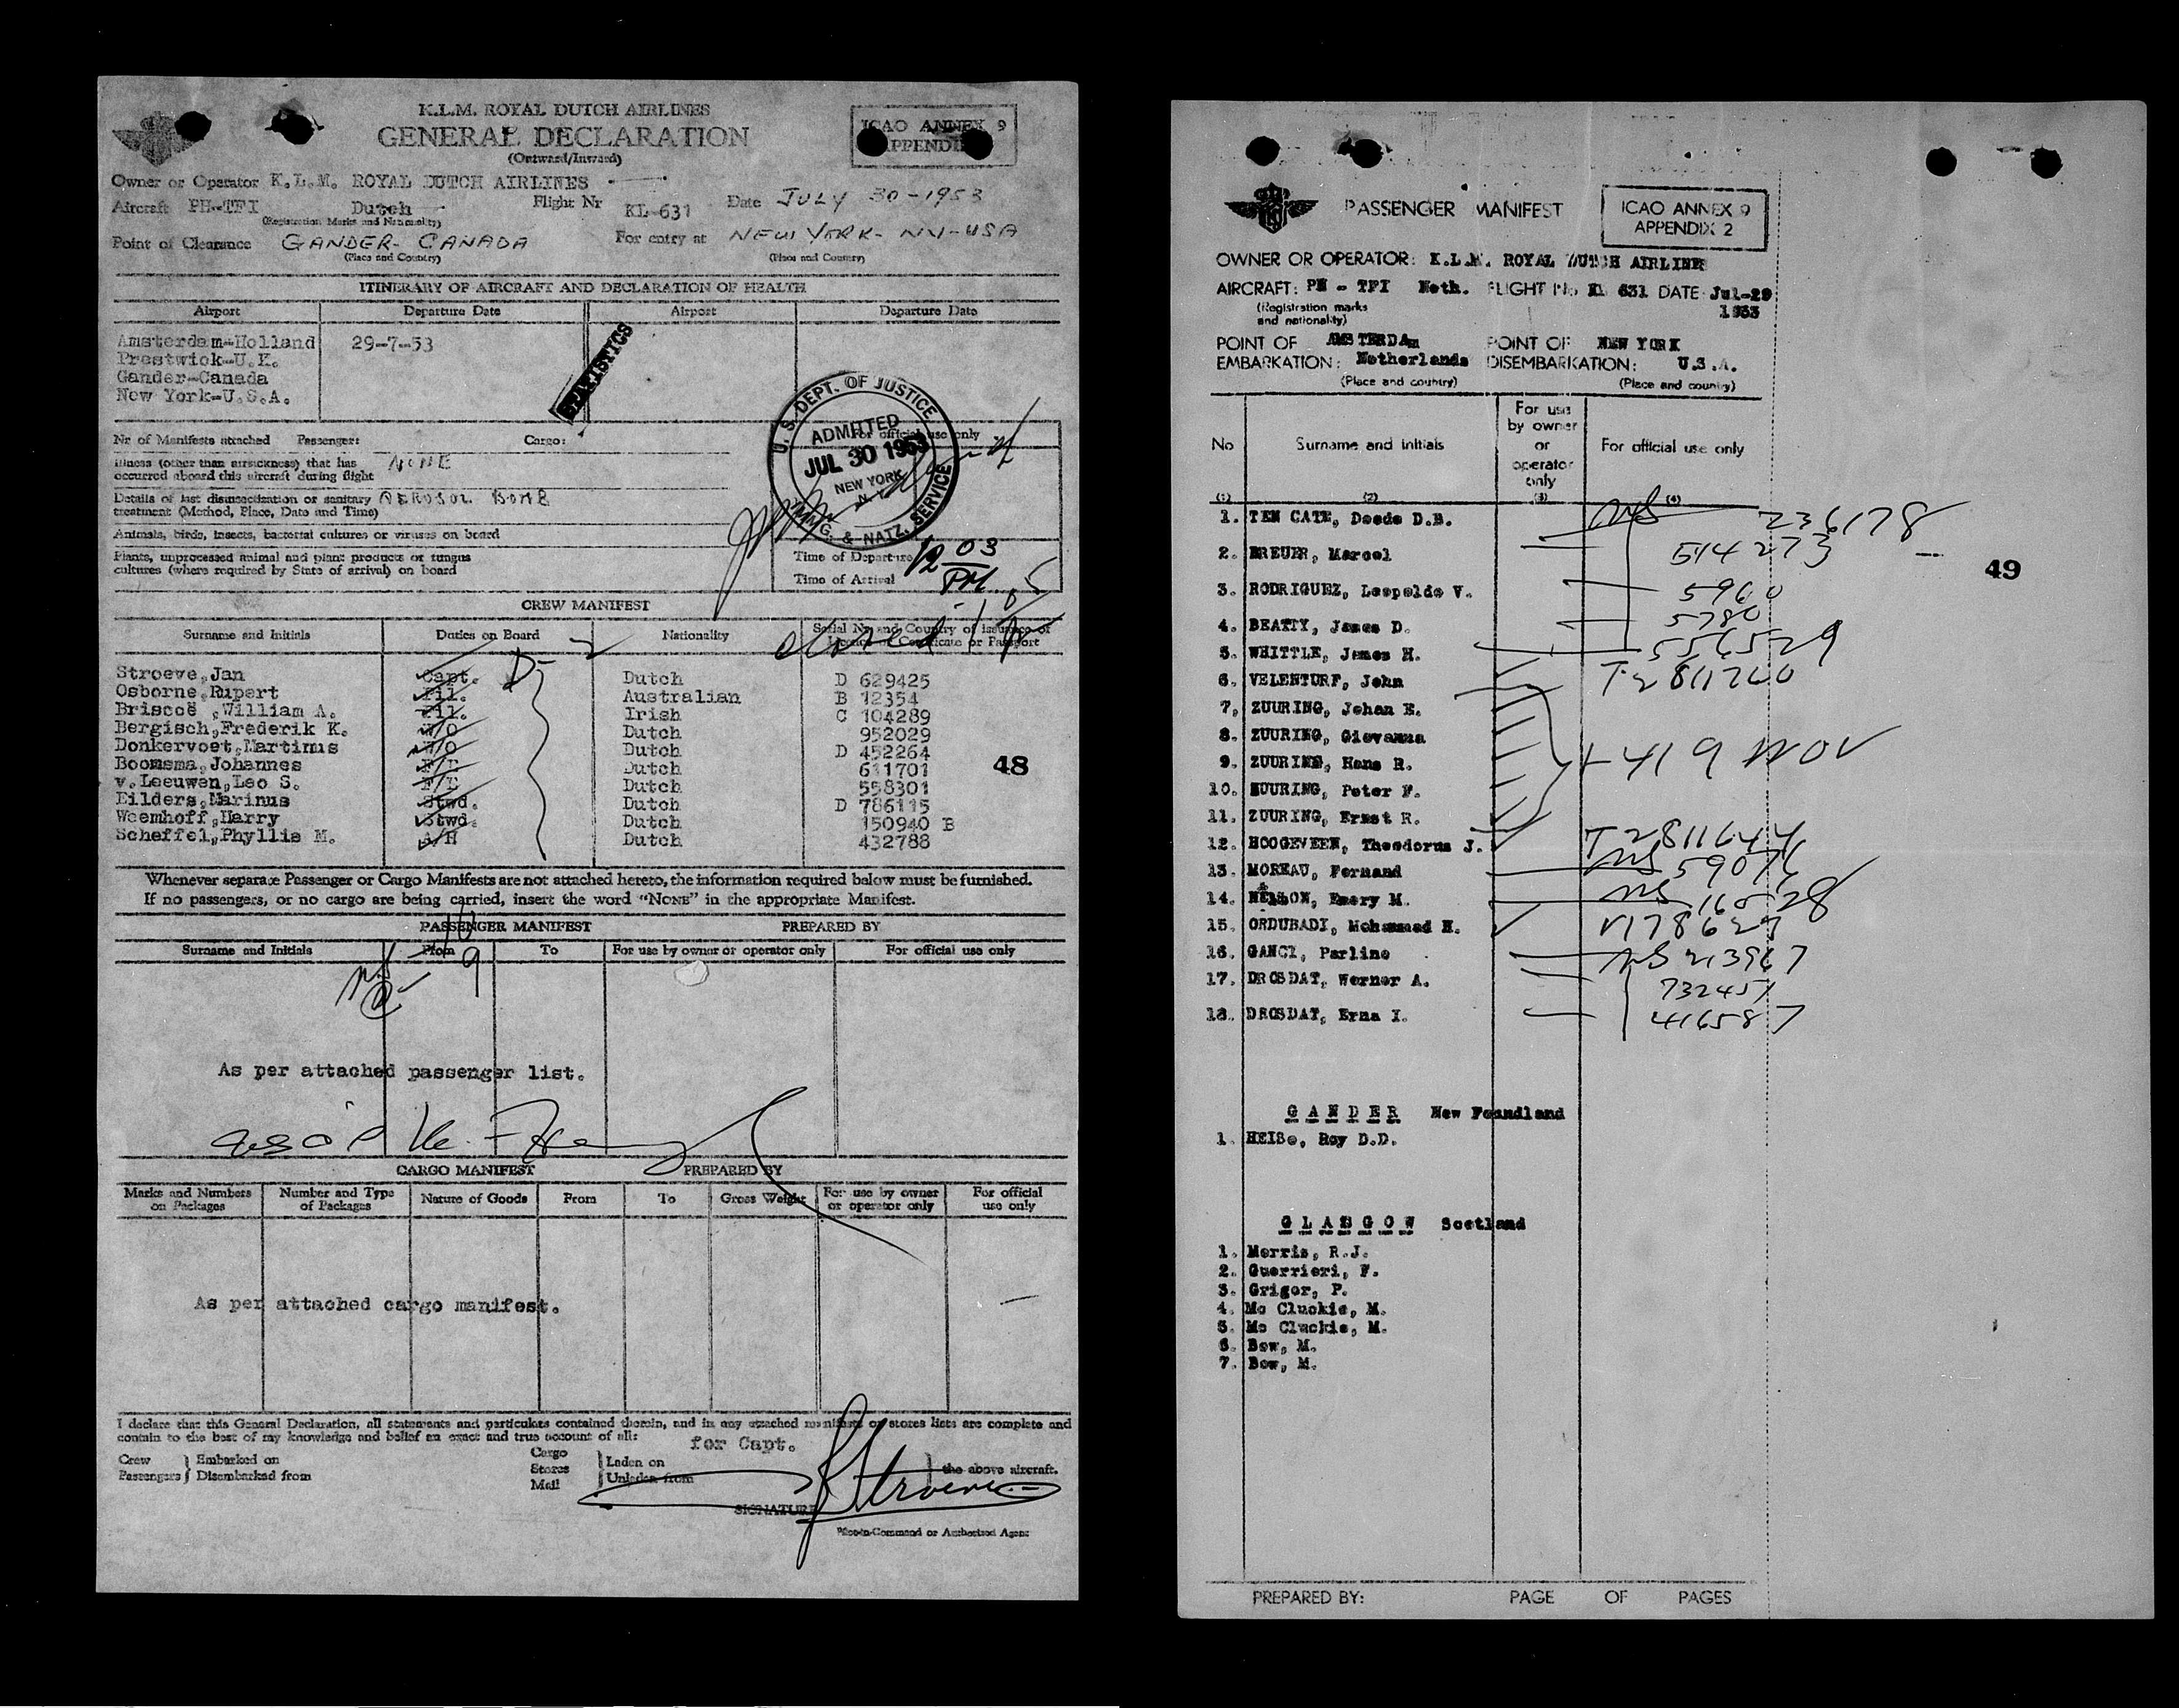 K.L.M. ROYAL DUTCH AIRLINES
GENERAL DECLARATION
(Outward/Inward)
ICAO ANNEX 9
APPENDIX
Owner or Operator K.L.M. ROYAL DUTCH AIRLINES
Aircraft PH-TFI Dutch Flight Nr KL-631 Date JULY 30-1953
(Registration Marks and Nationality)
Point of Clearance GANDER- CANADA For entry at NEW YORK- NY-USA
(Place and Country) (Place and Country)
ITINERARY OF AIRCRAFT AND DECLARATION OF HEALTH
Airport Departure Date Airport Departure Date
Amsterdam-Holland 29-7-53
Prestwick-U.K.
Gander-Canada
New York-U.S.A.
STATISTICS
Nr of Manifests attached Passenger: Cargo: For official use only
U. S. DEPT. OF JUSTICE
ADMITTED
JUL 30 1953
NEW YORK
N. Y.
IMMIG. & NATZ. SERVICE
Illness (other than airsickness) that has NONE
occurred aboard this aircraft during flight
Details of last disinsectization or sanitary AEROSOL BOMB
treatment (Method, Place, Date and Time)
Animals, birds, insects, bacterial cultures or viruses on board
Plants, unprocessed animal and plant products or fungus
cultures (where required by State of arrival) on board
Time of Departure 12 03
Time of Arrival PM
CREW MANIFEST
Surname and Initials Duties on Board Nationality Serial Nr and Country of Issuance of
Licence or Certificate or Passport
D-2
Stroeve,Jan Capt. Dutch D 629425
Osborne,Rupert Pil. Australian B 12354
Briscoë ,William A. Pil. Irish C 104289
Bergisch,Frederik K. W/O Dutch 952029
Donkervoet,Martinus W/O Dutch D 452264
Boomsma,Johannes F/E Dutch 611701
v.Leeuwen,Leo S. F/E Dutch 558301
Eilders,Marinus Stwd. Dutch D 786115
Weemhoff,Harry Stwd. Dutch 150940 B
Scheffel,Phyllis M. A/H Dutch 432788
48
Whenever separate Passenger or Cargo Manifests are not attached hereto, the information required below must be furnished.
If no passengers, or no cargo are being carried, insert the word "NONE" in the appropriate Manifest.
PASSENGER MANIFEST PREPARED BY
Surname and Initials From To For use by owner or operator only For official use only
As per attached passenger list.
CARGO MANIFEST PREPARED BY
Marks and Numbers on Packages Number and Type of Packages Nature of Goods From To Gross Weight For use by owner or operator only For official use only
As per attached cargo manifest.
I declare that this General Declaration, all statements and particulars contained therein, and in any attached manifests or stores lists are complete and
contain to the best of my knowledge and belief an exact and true account of all:
for Capt.
Crew Embarked on Cargo Laden on
Passengers Disembarked from Stores Unladen from the above aircraft.
Mail
SIGNATURE Stroeve
Pilot-in-Command or Authorized Agent
PASSENGER MANIFEST
ICAO ANNEX 9
APPENDIX 2
OWNER OR OPERATOR: K.L.M. ROYAL DUTCH AIRLINES
AIRCRAFT: PH - TFI Neth. FLIGHT No KL 631 DATE Jul-29
(Registration marks 1953
and nationality)
POINT OF AMSTERDAm POINT OF NEW YORK
EMBARKATION: Netherlands DISEMBARKATION: U.S.A.
(Place and country) (Place and country)
No Surname and initials For use by owner or operator only For official use only
(1) (2) (3) (4)
1. TEN CATE, Deede D.B. 236178
2. BREUER, Marcel 514273
3. RODRIGUEZ, Leopoldo V. 5960
4. BEATTY, James D. 5780
5. WHITTLE, James H. 556529
6. VELENTURF, John T-2811260
7, ZUURING, Johan E.
8. ZUURING, Giovanna
9. ZUURING, Hans R.
10. ZUURING, Peter F.
11. ZUURING, Ernst R.
12. HOOGEVEEN, Theodorus J. T2811644
13. MOREAU, Fernand
14. NELSON, Emery M.
15. ORDUBADI, Mohammed H.
16. GANCI, Parlino
17. DROSDAT, Werner A. 732451
18. DROSDAT, Erna I. 416587
49
GANDER New Foundland
1. HEISe, Roy D.D.
GLASGOW Scotland
1. Morris, R.J.
2. Guerrieri, F.
3. Grigor, P.
4. Mc Cluckie, M.
5. Mc Cluckie, M.
6. Bow, M.
7. Bow, M.
PREPARED BY: PAGE OF PAGES